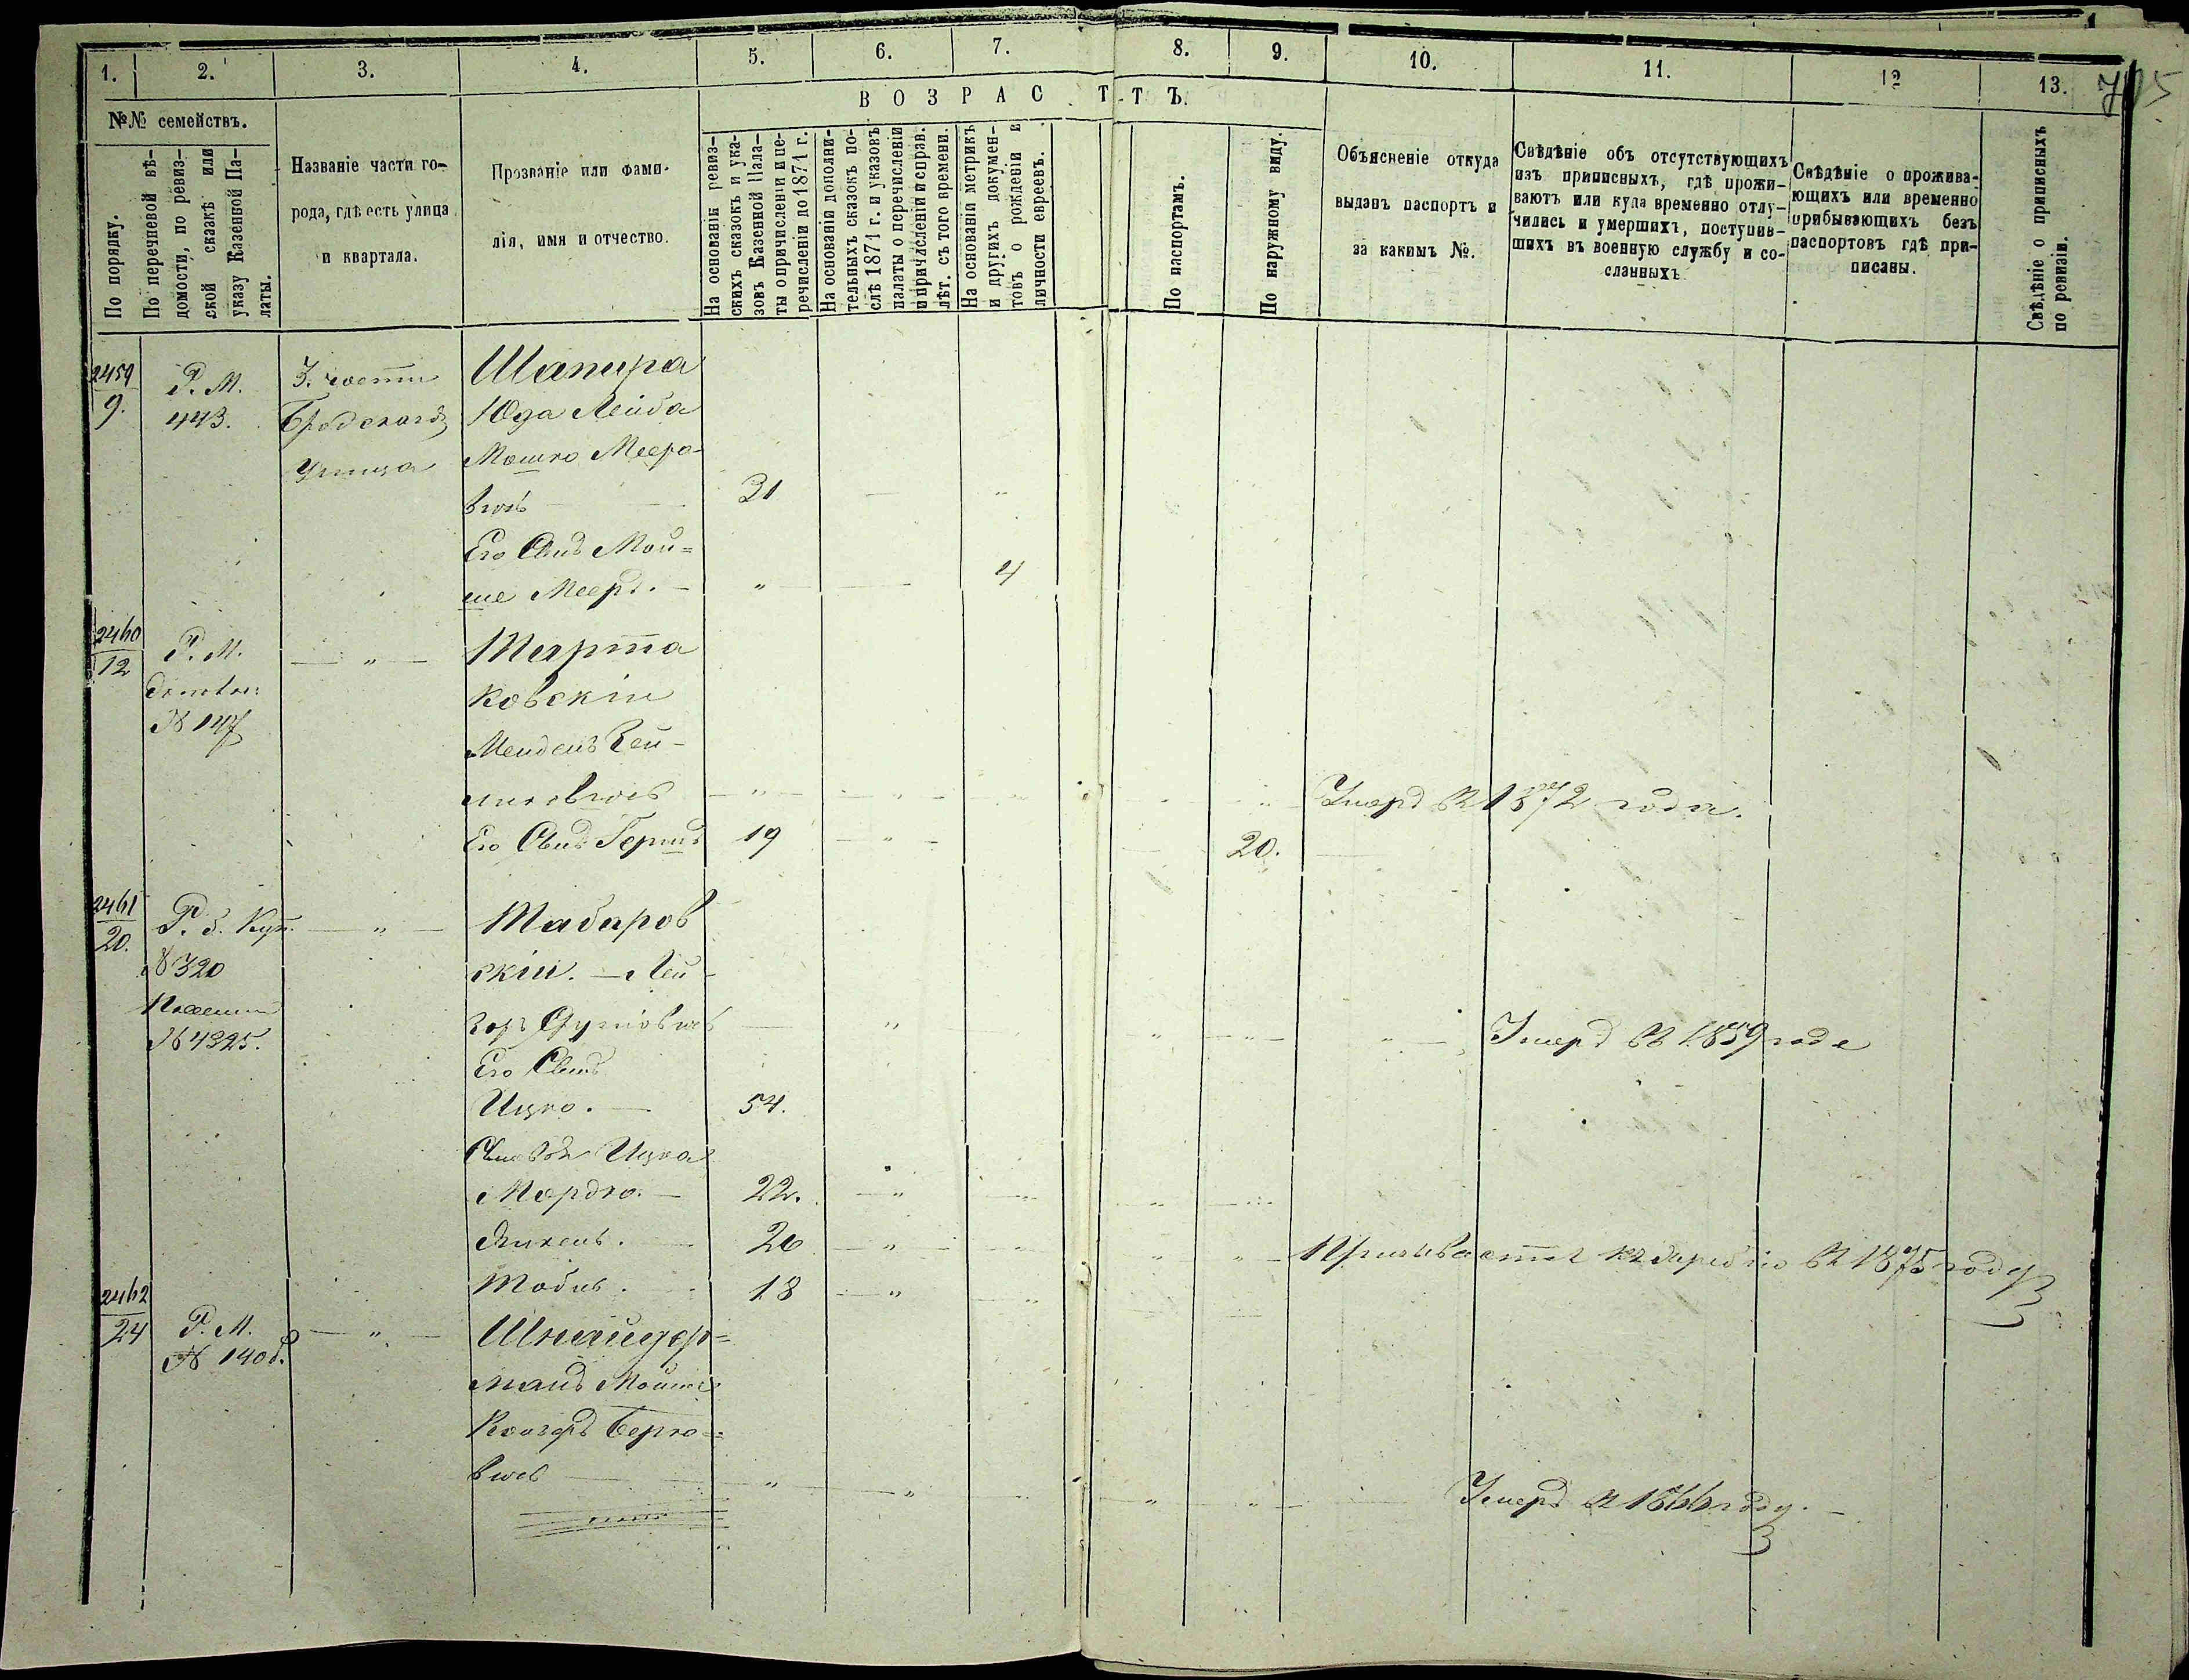 1. 2. 3. 4. 5. 6. 7. 8. 9. 10. 11. 12 13.
ВОЗРАСТТЪ.
№№ семействъ.
По порядку.
По перечневой вѣ-
домости, по ревиз-
ской сказкѣ или
указу Казенной Па-
латы.
Названіе части го-
рода, гдѣ есть улица
и квартала.
Прозваніе или фами-
лія, имя и отчество.
На основаніи ревиз-
скихъ сказокъ и ука-
зовъ Казенной Пала-
ты о причисленіи и пе-
речисленіи до 1871 г.
На основаніи дополни-
тельныхъ сказокъ по-
слѣ 1871 г. и указовъ
палаты о перечисленіи
и причисленіи и справ.
лѣт. съ того времени.
На основаніи метрикъ
и другихъ докумен-
товъ о рожденіи и
личности евреевъ.
По паспортамъ.
По наружному виду.
Объясненіе откуда
выданъ паспортъ и
за какимъ №.
Свѣдѣніе объ отсутствующихъ
изъ приписныхъ, гдѣ прожи-
ваютъ или куда временно отлу-
чились и умершихъ, поступив-
шихъ въ военную службу и со-
сланныхъ
Свѣдѣніе о прожива-
ющихъ или временно
прибывающихъ безъ
паспортовъ гдѣ при-
писаны.
Свѣдѣніе о приписныхъ
по ревизіи.
2459
9.
Р. М.
443.
3. части
Улица
Шапира
Юда Лейба
Мошко Мееро-
вичъ 31
Его Сынъ Мой=
ше Мееръ. — " 4
2460
12
Р. М.
№ 147
— " —
Шерта
ковскій
Мендель Зей-
Умеръ въ 1872 году.
Его Сынъ Гершъ 19 20.
2461
20.
Р. б. Куп.
№ 320
№ 4325.
— " —
Табаров
скій. — Лей-
зоръ Сруловичъ
Умеръ въ 1859 годе
Его Сынъ
Ицко. — 54.
Сыновья Ицка
Мордко. — 22.
20
Призывается къ жребію въ 1875 году
Тобиь. 18
2462
24
Р. М.
№ 140
— " —
Шнайдер=
манъ Мойше
Берко=
вичъ
Умеръ въ 1866 году. —